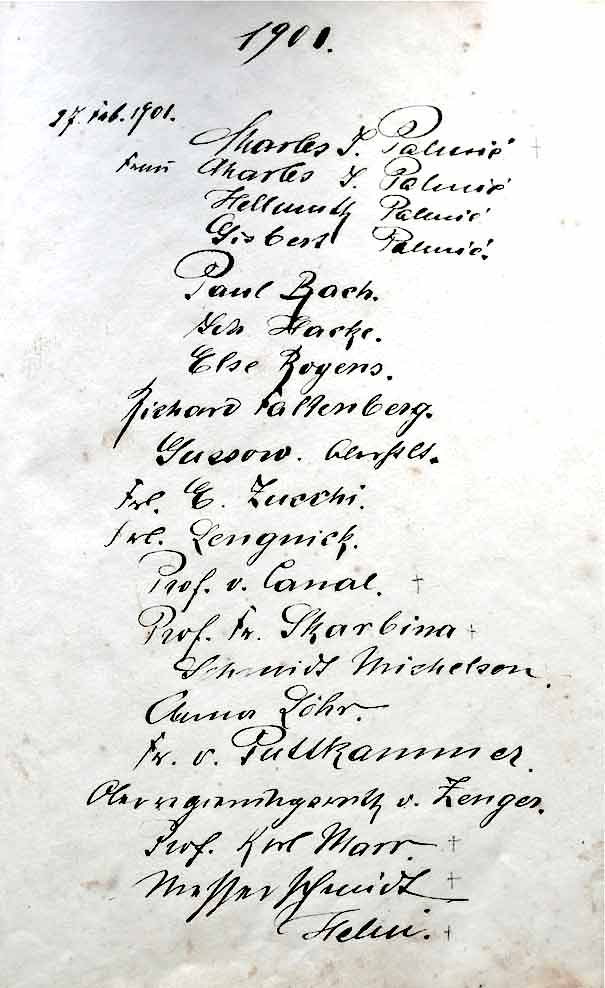 1901.
27. Feb. 1901.
Charles J. Palmié †
Frau Charles J. Palmié
Hellmuth Palmié
Gisbert Palmié.
Paul Bach.
Hacke.
Else Rogens.
Richard Falkenberg.
Gussow.
Frl. E. Zucchi.
Frl. Lengnick.
Prof. v. Canal. †
Prof. Fr. Skarbina †
Schmidt Michelson.
Anna Löhr.
Fr. v. Puttkammer.
Oberregierungsrath v. Zenger.
Prof. Karl Marr. †
Messerschmidt †
Helm. †